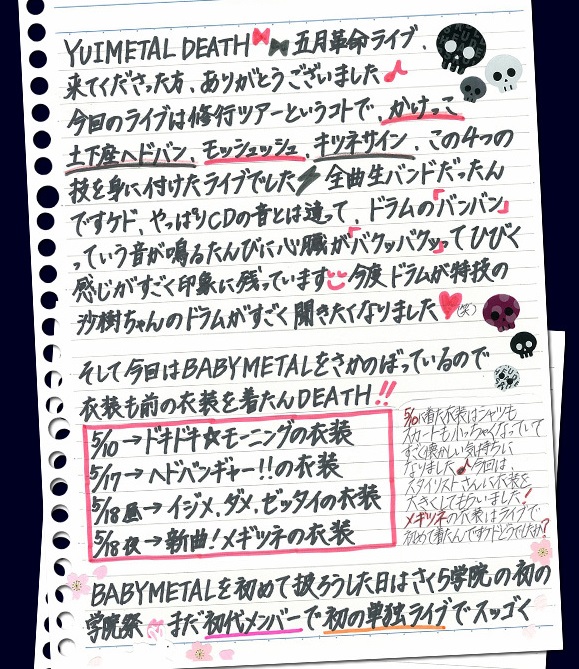 YUIMETAL DEATH 五月革命ライブ、
来てくださった方、ありがとうございました♪
今日のライブは修行ツアーというコトで、かけっこ
土下座ヘドバン、モッシュッシュ、キツネサイン、この4つの
技を身に付けたライブでした 全曲生バンドだったん
ですケド、やっぱりCDの音とは違って、ドラムの「バンバン」
っていう音が鳴るたんびに心臓が「バクッバクッ」ってひびく
感じがすごく印象に残っています 今度ドラムが特技の
沙樹ちゃんのドラムがすごく聞きたくなりました♥(笑)
そして今日はBABYMETALをさかのぼっているので
衣装も前の衣装を着たんDEATH!!
5/10→ドキドキ☆モーニングの衣装
5/17→ヘドバンギャー!!の衣装
5/18昼→イジメ、ダメ、ゼッタイの衣装
5/18夜→新曲!メギツネの衣装
5/10に着た衣装はシャツも
スカートも小っちゃくなっていて
すごく懐かしい気持ちに
なりました♪今回は、
スタイリストさんに衣装を
大きくしてもらいました!
メギツネの衣装はライブで
初めて着たんですケドどうでしたか?
BABYMETALを初めて披ろうした日はさくら学院の初の
学院祭 まだ初代メンバーで初の単独ライブでスッゴく